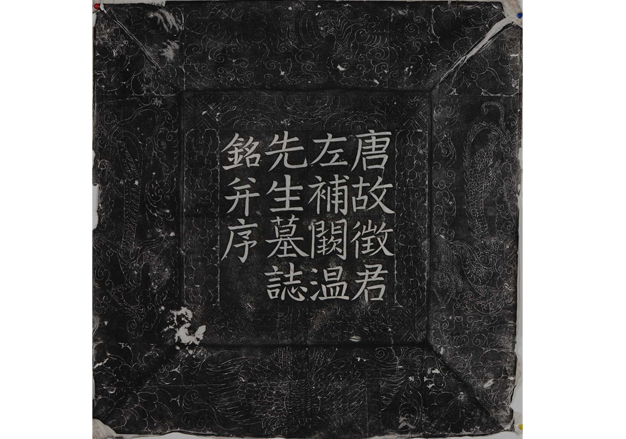 唐故徵君
左補闕温
先生墓誌
銘幷序